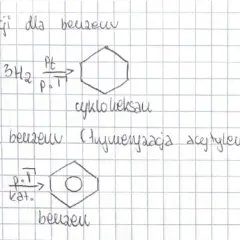 ji dla benzenu
3H₂ Pt p.T
cykloheksan
benzenu (trymeryzacja acetylen
p.T kat.
benzen